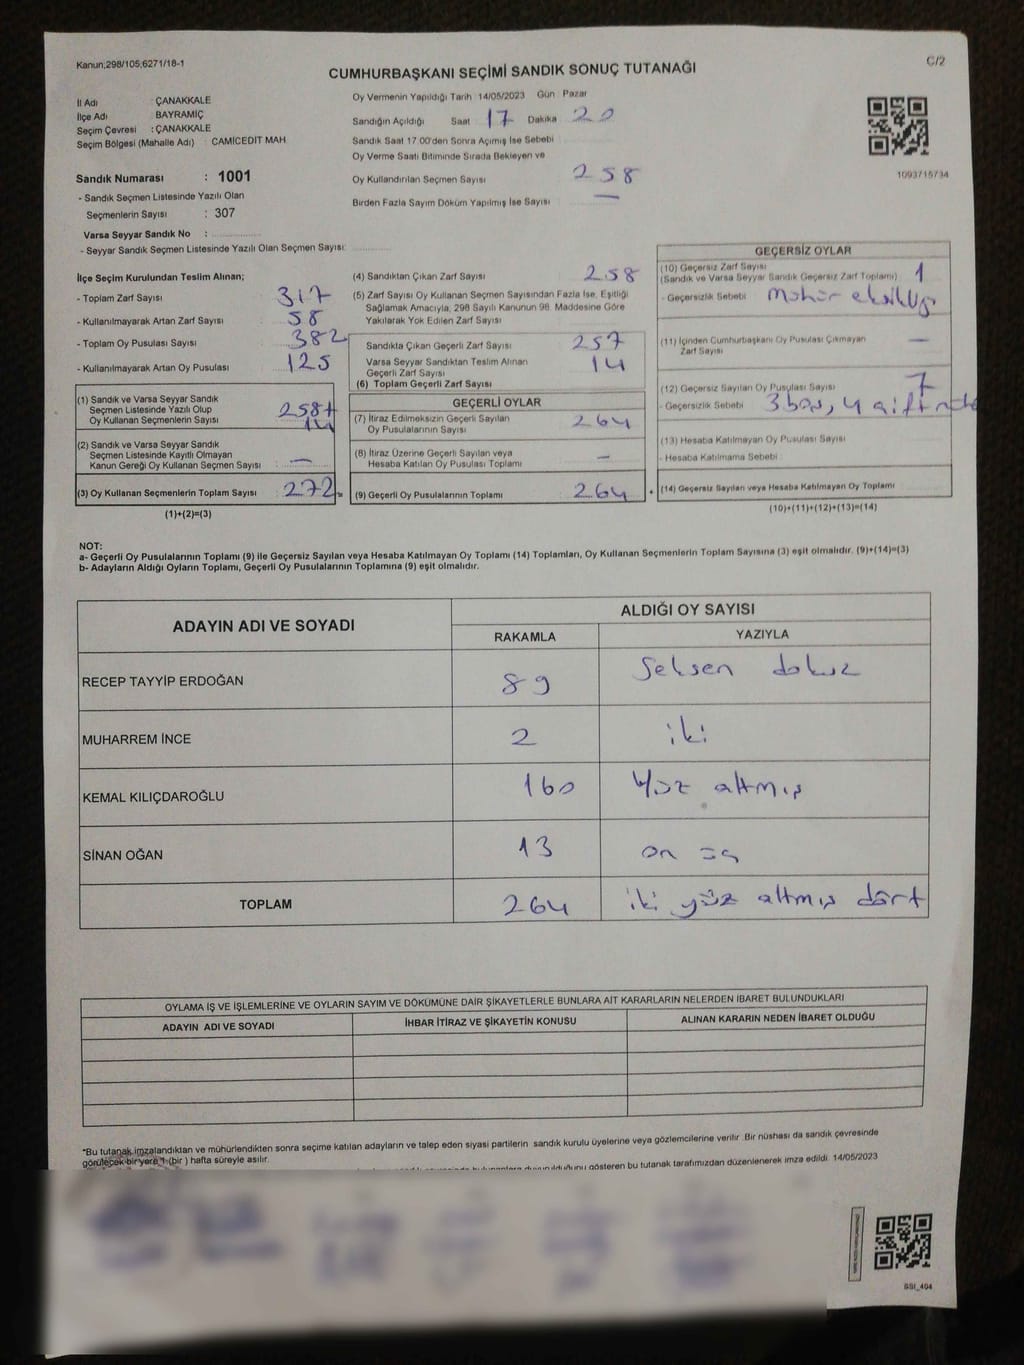 Kanun;298/105;6271/18-1
C/2
CUMHURBAŞKANI SEÇİMİ SANDIK SONUÇ TUTANAĞI
İl Adı : ÇANAKKALE
İlçe Adı : BAYRAMİÇ
Seçim Çevresi : ÇANAKKALE
Seçim Bölgesi (Mahalle Adı) : CAMİCEDİT MAH
Sandık Numarası : 1001
- Sandık Seçmen Listesinde Yazılı Olan
Seçmenlerin Sayısı : 307
Varsa Seyyar Sandık No :
- Seyyar Sandık Seçmen Listesinde Yazılı Olan Seçmen Sayısı:
Oy Vermenin Yapıldığı Tarih 14/05/2023 Gün Pazar
Sandığın Açıldığı Saat 17 Dakika 20
Sandık Saat 17:00'den Sonra Açımış İse Sebebi
Oy Verme Saati Bitiminde Sırada Bekleyen ve
Oy Kullandırılan Seçmen Sayısı 258
Birden Fazla Sayım Döküm Yapılmış İse Sayısı —
İlçe Seçim Kurulundan Teslim Alınan;
- Toplam Zarf Sayısı 317
- Kullanılmayarak Artan Zarf Sayısı 58
- Toplam Oy Pusulası Sayısı 382
- Kullanılmayarak Artan Oy Pusulası 125
(1) Sandık ve Varsa Seyyar Sandık
Seçmen Listesinde Yazılı Olup
Oy Kullanan Seçmenlerin Sayısı 258+
14
(2) Sandık ve Varsa Seyyar Sandık
Seçmen Listesinde Kayıtlı Olmayan
Kanun Gereği Oy Kullanan Seçmen Sayısı —
(3) Oy Kullanan Seçmenlerin Toplam Sayısı 272
(1)+(2)=(3)
(4) Sandıktan Çıkan Zarf Sayısı 258
(5) Zarf Sayısı Oy Kullanan Seçmen Sayısından Fazla İse, Eşitliği
Sağlamak Amacıyla, 298 Sayılı Kanunun 98. Maddesine Göre
Yakılarak Yok Edilen Zarf Sayısı
Sandıkta Çıkan Geçerli Zarf Sayısı 257
Varsa Seyyar Sandıktan Teslim Alınan
Geçerli Zarf Sayısı 14
(6) Toplam Geçerli Zarf Sayısı
GEÇERLİ OYLAR
(7) İtiraz Edilmeksizin Geçerli Sayılan
Oy Pusulalarının Sayısı 264
(8) İtiraz Üzerine Geçerli Sayılan veya
Hesaba Katılan Oy Pusulası Toplamı —
(9) Geçerli Oy Pusulalarının Toplamı 264
GEÇERSİZ OYLAR
(10) Geçersiz Zarf Sayısı
(Sandık ve Varsa Seyyar Sandık Geçersiz Zarf Toplamı) 1
- Geçersizlik Sebebi Mühür eksikliği
(11) İçinden Cumhurbaşkanı Oy Pusulası Çıkmayan
Zarf Sayısı —
(12) Geçersiz Sayılan Oy Pusulası Sayısı 7
- Geçersizlik Sebebi 3 boş, 4
(13) Hesaba Katılmayan Oy Pusulası Sayısı
- Hesaba Katılmama Sebebi
(14) Geçersiz Sayılan veya Hesaba Katılmayan Oy Toplamı
(10)+(11)+(12)+(13)=(14)
NOT:
a- Geçerli Oy Pusulalarının Toplamı (9) ile Geçersiz Sayılan veya Hesaba Katılmayan Oy Toplamı (14) Toplamları, Oy Kullanan Seçmenlerin Toplam Sayısına (3) eşit olmalıdır. (9)+(14)=(3)
b- Adayların Aldığı Oyların Toplamı, Geçerli Oy Pusulalarının Toplamına (9) eşit olmalıdır.
ADAYIN ADI VE SOYADI
ALDIĞI OY SAYISI
RAKAMLA YAZIYLA
RECEP TAYYİP ERDOĞAN 89 Seksen dokuz
MUHARREM İNCE 2 iki
KEMAL KILIÇDAROĞLU 160 Yüz altmış
SİNAN OĞAN 13 on üç
TOPLAM 264 iki yüz altmış dört
OYLAMA İŞ VE İŞLEMLERİNE VE OYLARIN SAYIM VE DÖKÜMÜNE DAİR ŞİKAYETLERLE BUNLARA AİT KARARLARIN NELERDEN İBARET BULUNDUKLARI
ADAYIN ADI VE SOYADI İHBAR İTİRAZ VE ŞİKAYETİN KONUSU ALINAN KARARIN NEDEN İBARET OLDUĞU
*Bu tutanak imzalandıktan ve mühürlendikten sonra seçime katılan adayların ve talep eden siyasi partilerin sandık kurulu üyelerine veya gözlemcilerine verilir. Bir nüshası da sandık çevresinde
görülecek bir yere 1 (bir) hafta süreyle asılır.
gösteren bu tutanak tarafımızdan düzenlenerek imza edildi. 14/05/2023